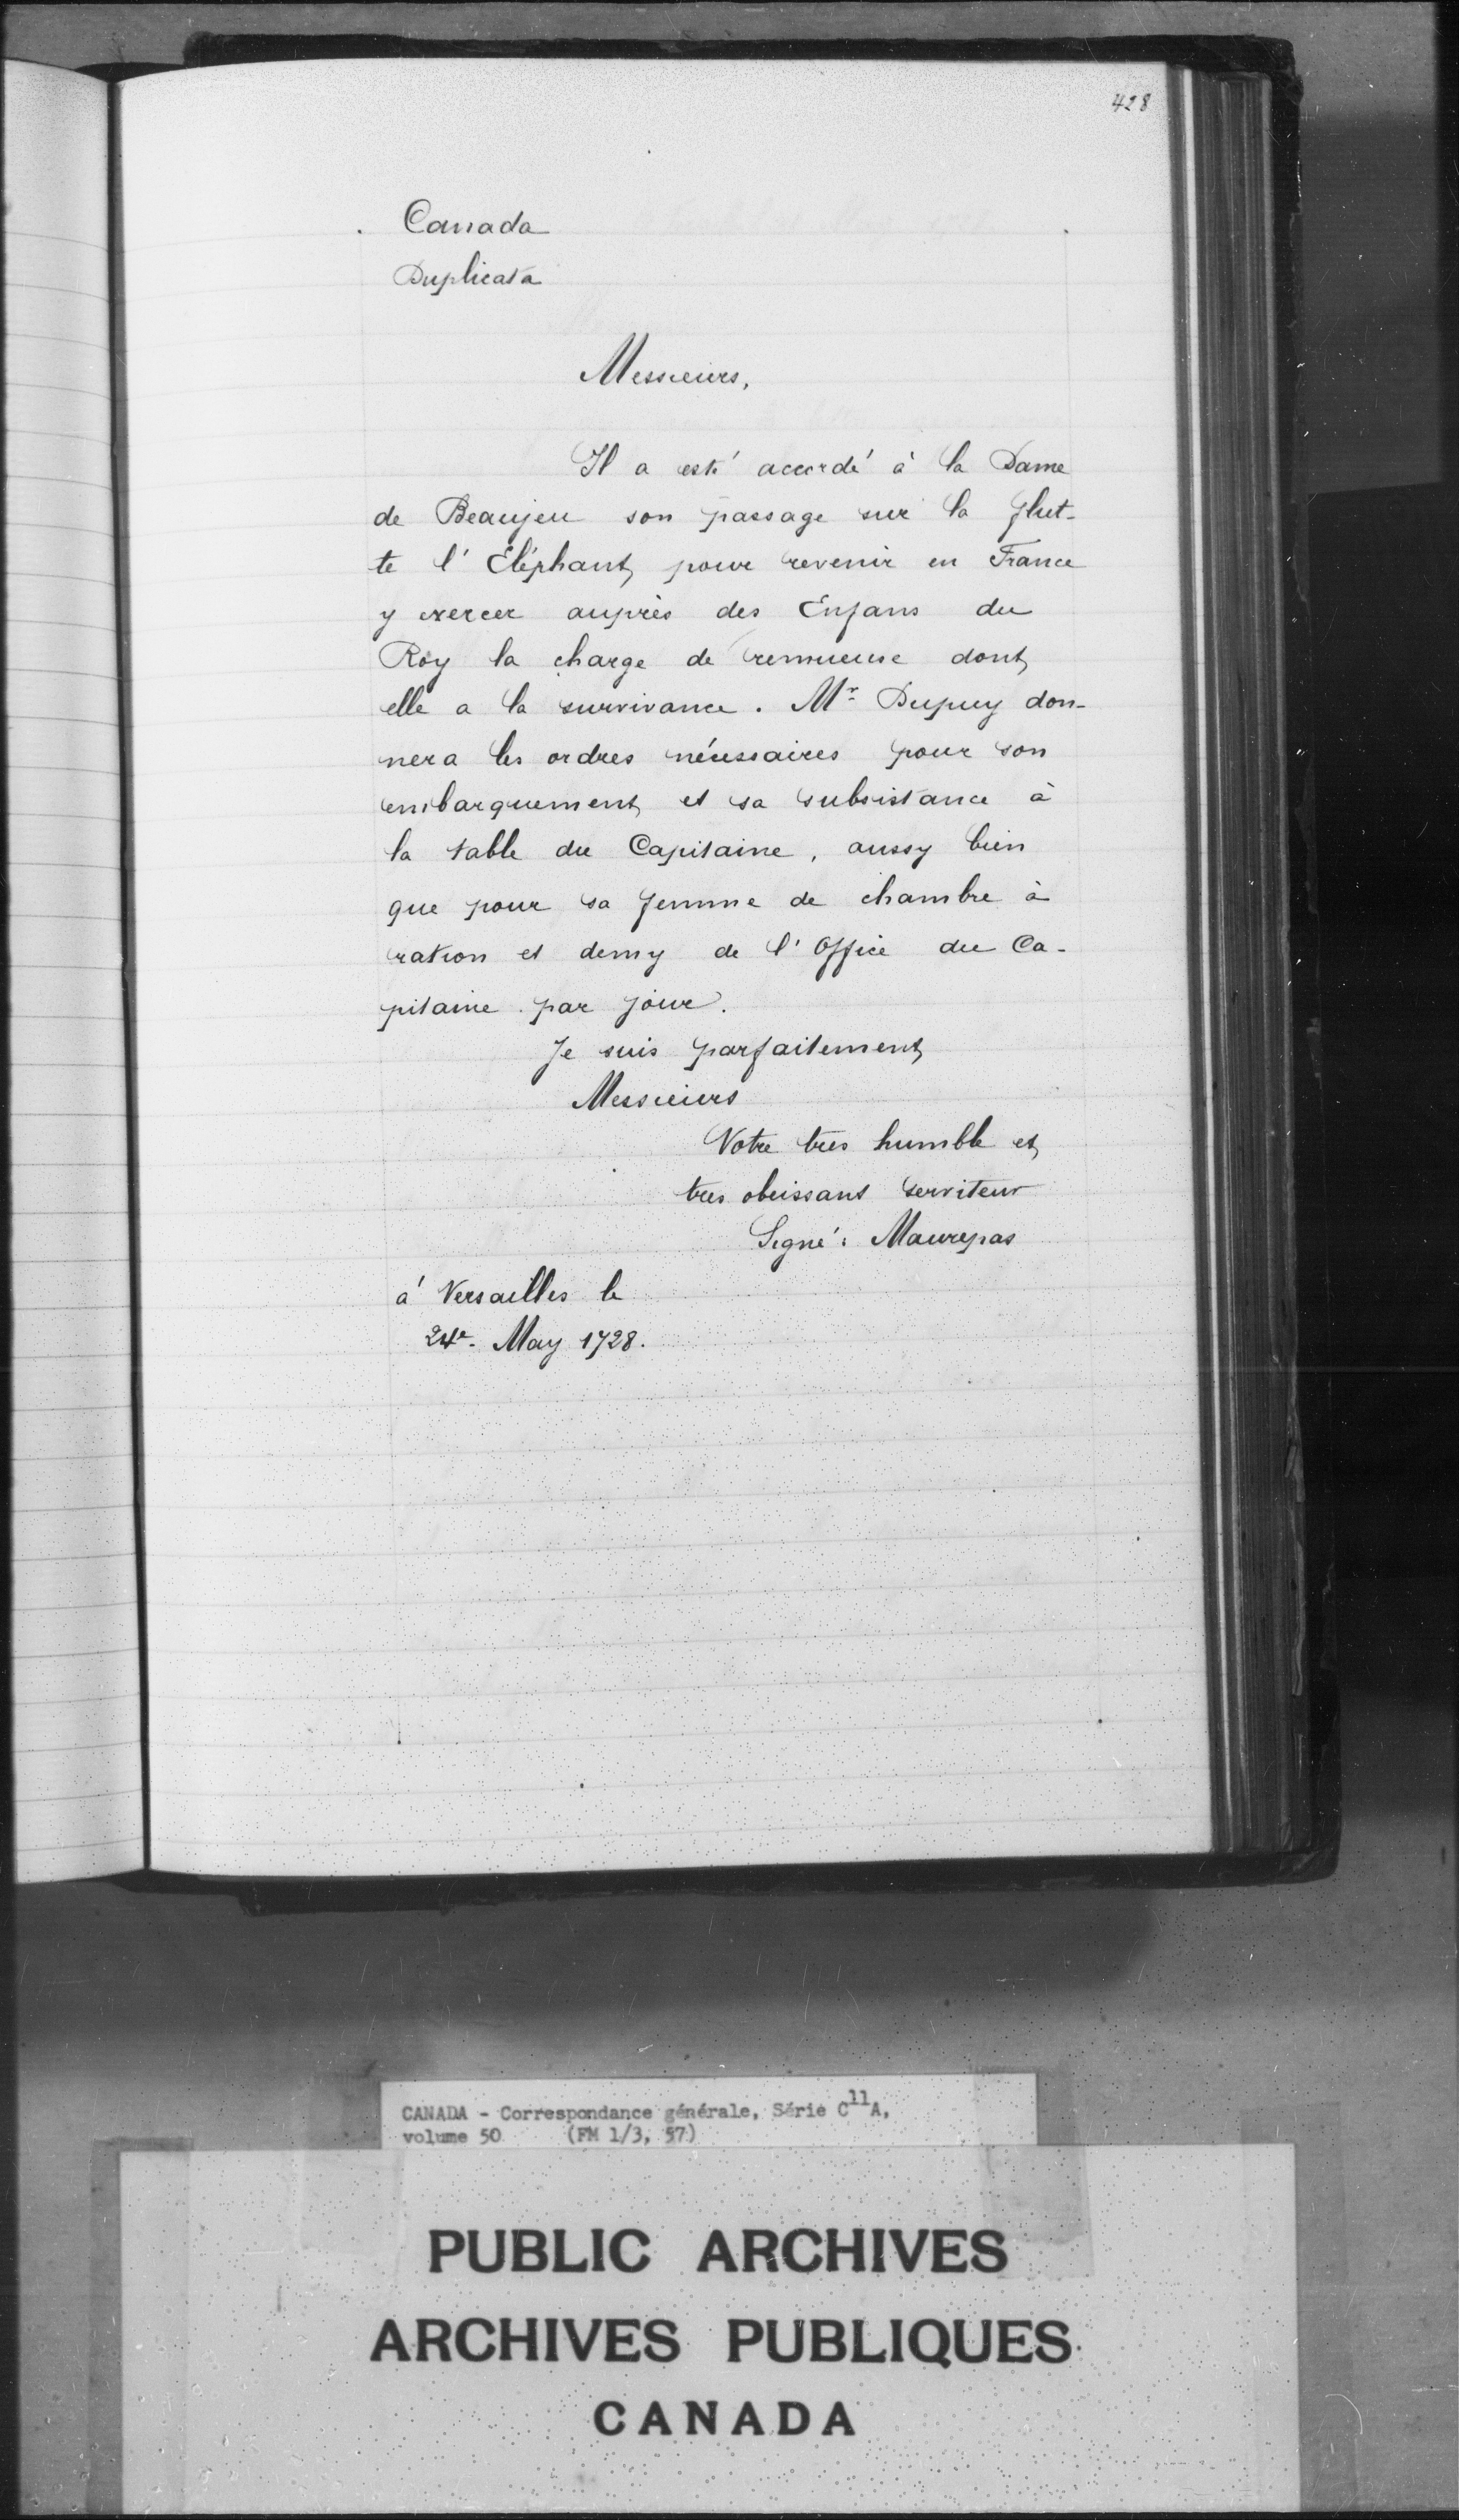 428
Canada
Duplicata
Messieurs,
Il a esté accordé à la Dame
de Beaujeu son passage sur la flut-
te l'Éléphant, pour revenir en France
y exercer auprès des Enfans du
Roy la charge de remueuse dont
elle a la survivance. Mr Dupuy don-
nera les ordres nécessaires pour son
embarquement et sa subsistance à
la table du Capitaine, aussy bien
que pour sa femme de chambre à
ration et demy de l'Office du Ca-
pitaine par jour.
Je suis parfaitement
Messieurs
Votre tres humble et
tres obeissant serviteur
Signé: Maurepas
à Versailles le
24e. May 1728.
CANADA - Correspondance générale, Série C11A,
volume 50 (FM 1/3, 57)
PUBLIC ARCHIVES
ARCHIVES PUBLIQUES
CANADA